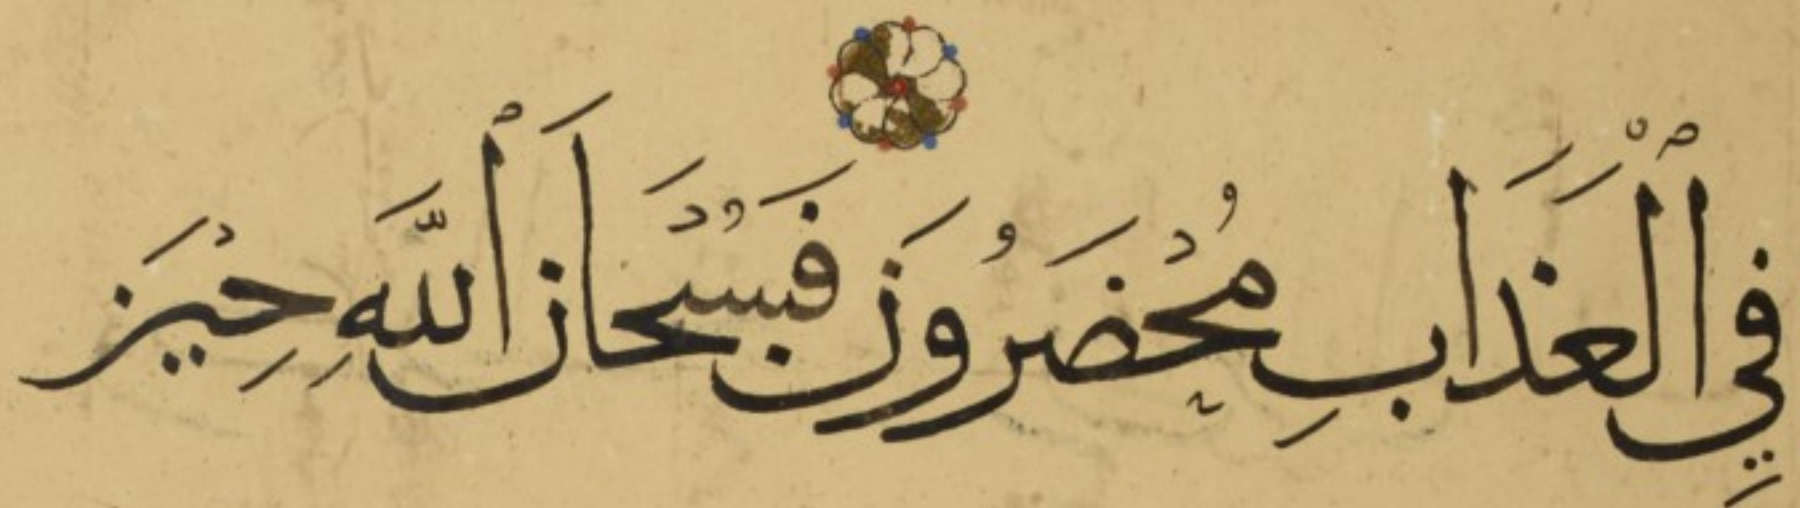 فِي ٱلْعَذَابِ مُحْضَرُونَ فَسُبْحَانَ ٱللَّهِ حِينَ